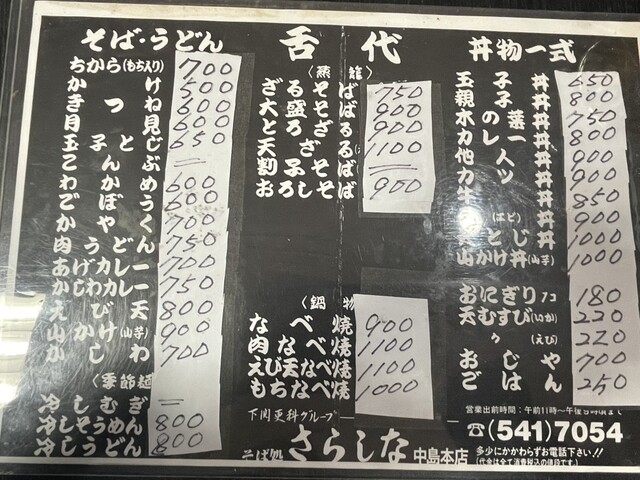 そば・うどん
ちから(もち入り) 700
かけ 500
きつね 600
月見 600
玉子とじ 650
こんぶ =
わかめ 600
ごぼう 600
かやく 700
肉うどん 750
あげカレー 700
かしわカレー 750
えび天 800
山かけ(山芋) 900
かしわ 700
〈季節麺〉
冷しむぎ =
冷しそうめん 800
冷しうどん 800
舌代
〈蒸籠〉
ざるそば 750
大盛そば 900
とろざる 900
天ざる 1100
割子そば =
おろしそば 900
〈鍋物〉
なべ焼 900
肉なべ焼 1100
えび天なべ焼 1100
もちなべ焼 1000
丼物一式
玉子丼 650
親子丼 800
木の葉丼 750
カレー丼 800
他人丼 900
カツ丼 900
丼 850
丼 900
とじ丼 1000
山かけ丼(山芋) 1000
おにぎり2コ 180
天むすび(いか) 220
々(えび) 220
おじや 700
ごはん 250
下関更科グループ
そば処 さらしな 中島本店
営業出前時間:午前11時〜午後8時頃まで
☎(541)7054
多少にかかわらずお電話下さい!!
(代金は全て消費税込の値段です。)